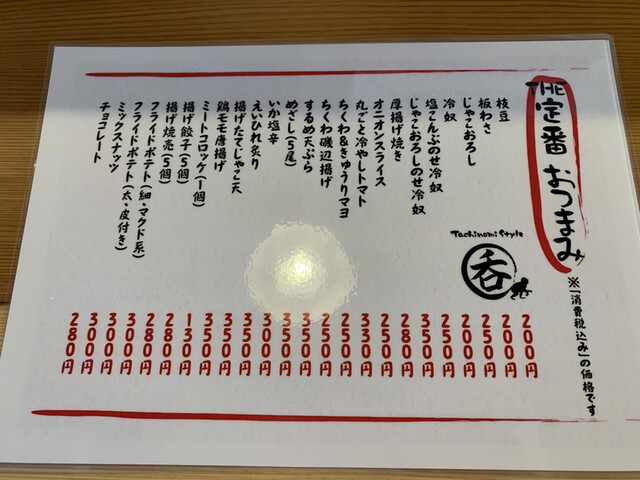 THE 定番 おつまみ
※「消費税込み」の価格です
Tachinomi Style
呑
枝豆
板わさ
じゃこおろし
冷奴
塩こんぶのせ冷奴
じゃこおろしのせ冷奴
厚揚げ焼き
オニオンスライス
丸ごと冷やしトマト
ちくわ&きゅうりマヨ
ちくわ磯辺揚げ
するめ天ぷら
めざし(5尾)
いか塩辛
えいひれ炙り
揚げたてじゃこ天
鶏モモ唐揚げ
ミートコロッケ(1個)
揚げ餃子(5個)
揚げ焼売(5個)
フライドポテト(細・マクド系)
フライドポテト(太・皮付き)
ミックスナッツ
チョコレート
200円
200円
250円
200円
250円
350円
280円
250円
330円
250円
250円
350円
350円
300円
350円
350円
350円
130円
280円
280円
300円
300円
300円
280円